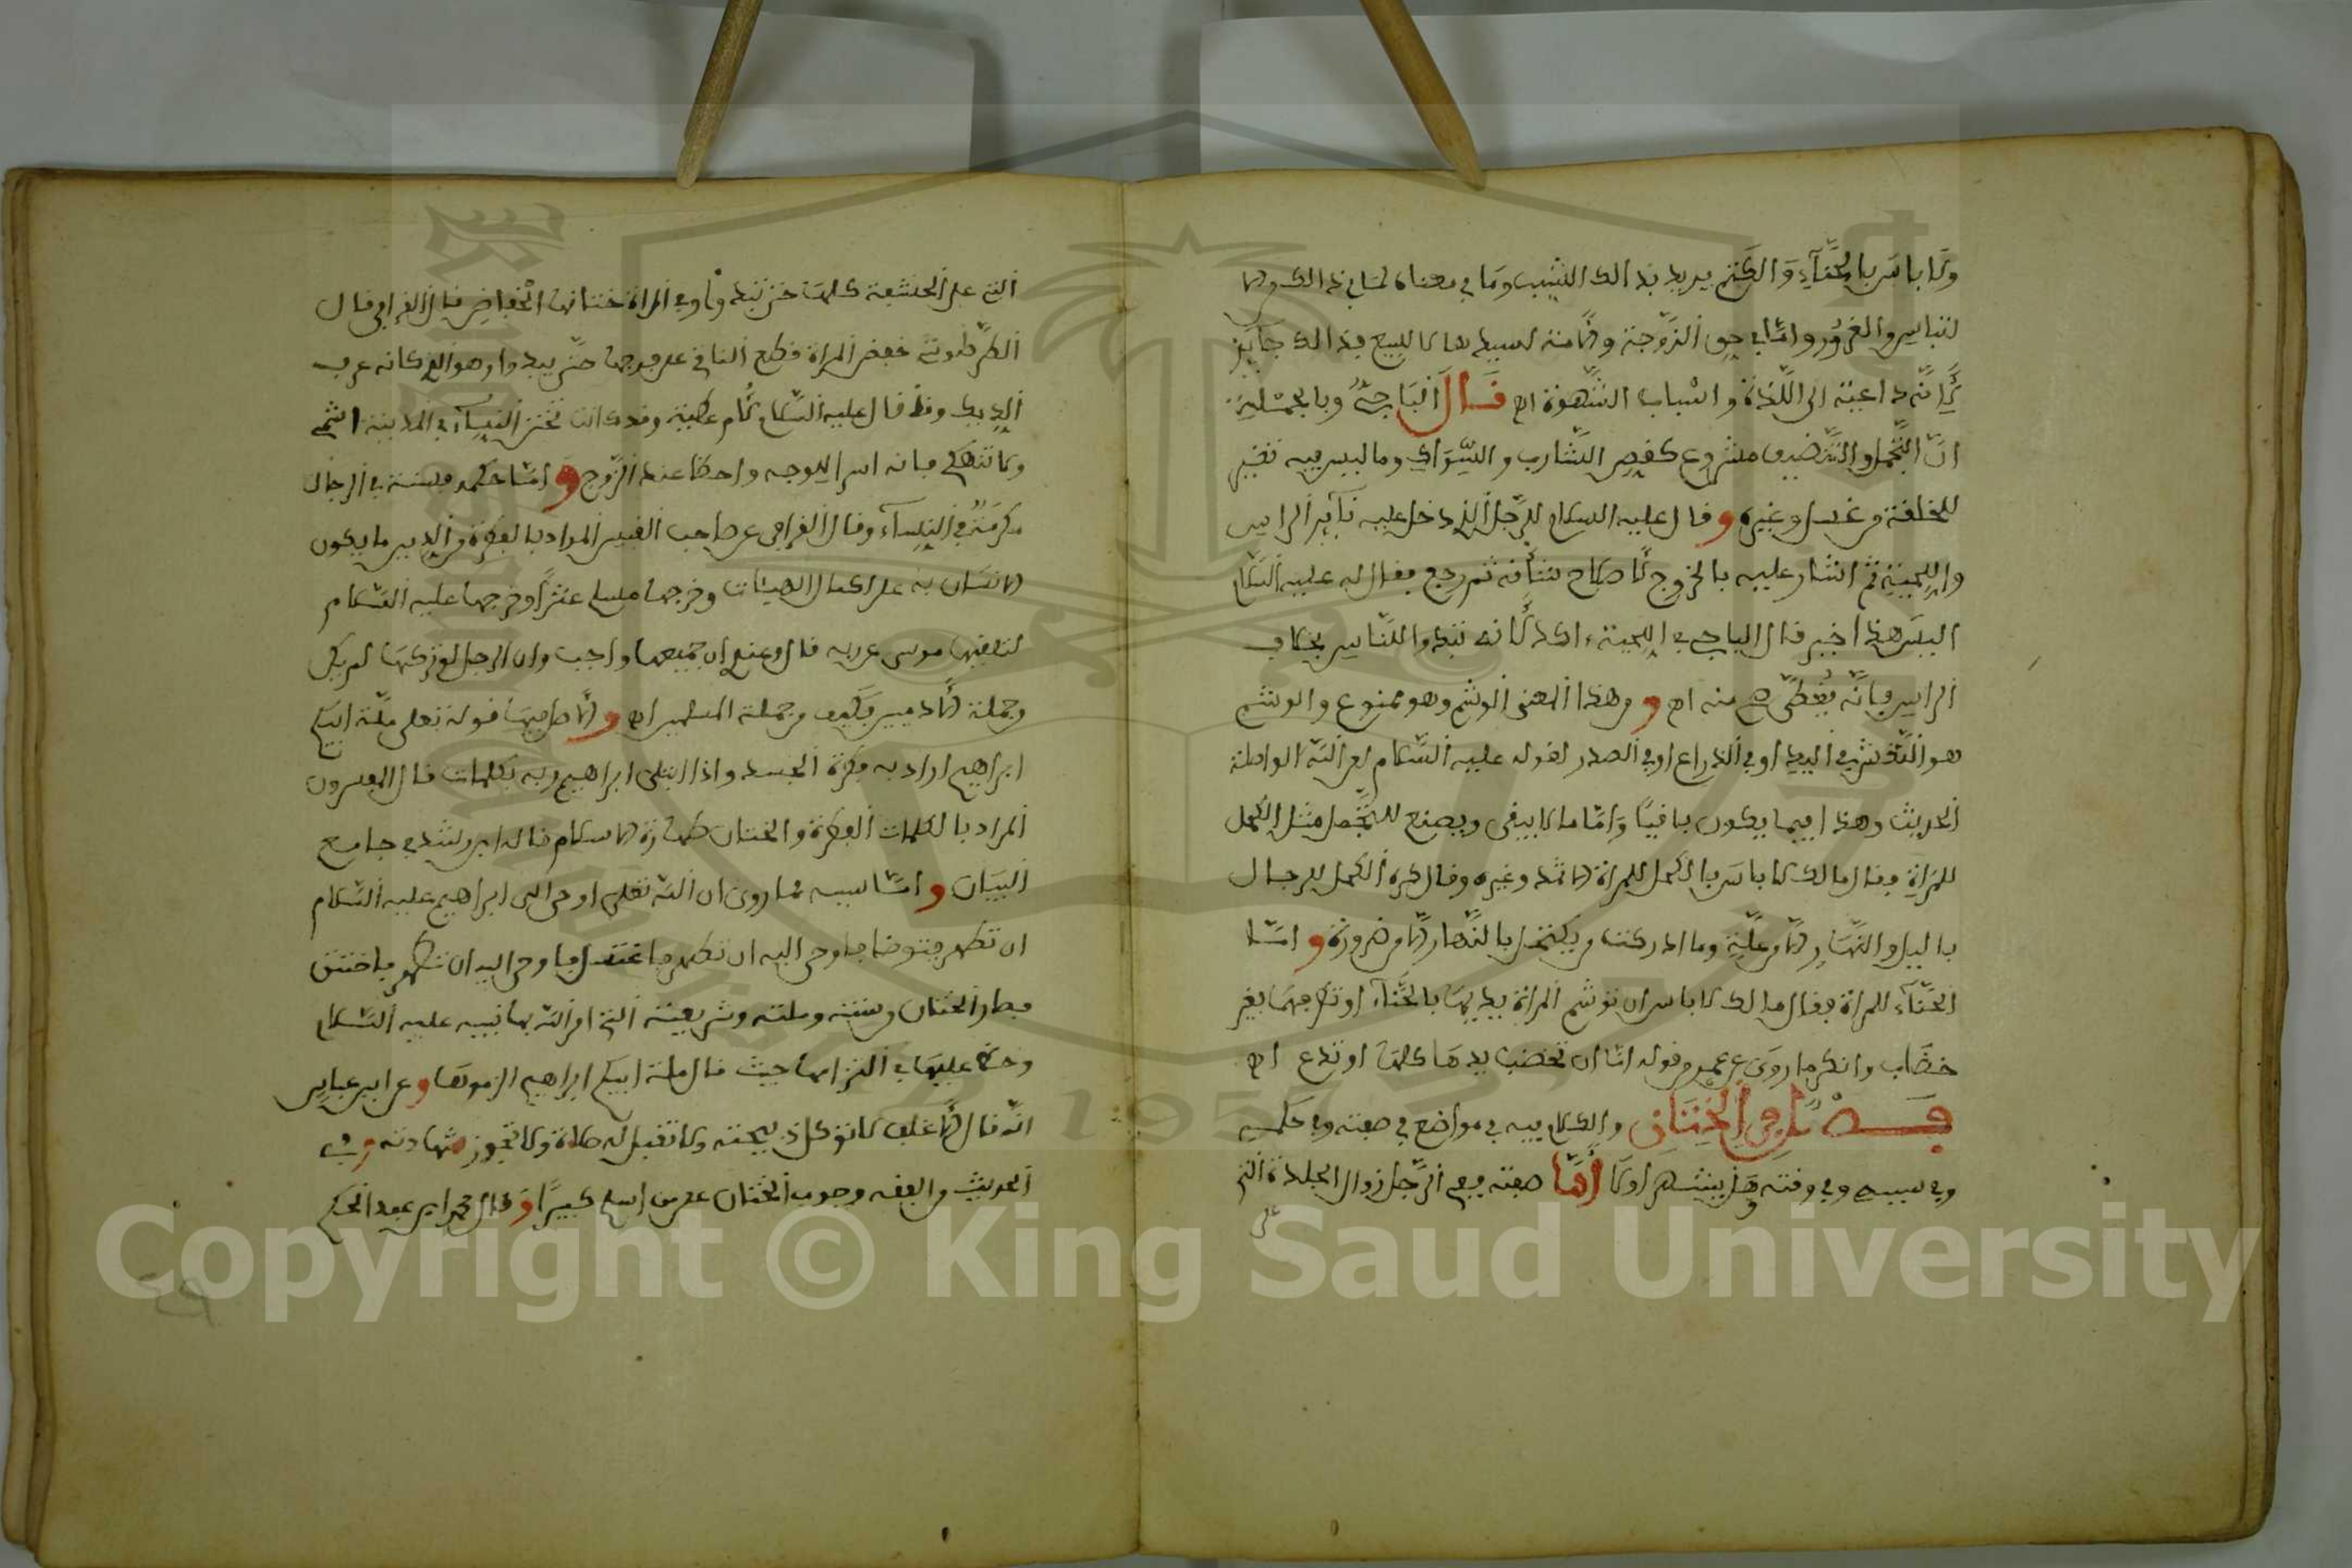 ولا باس بالحناء والكتم يريد بذالك الشيب وما في معناه لما في ذالك من
التباس والغرور واما في حق الزوجة والامة لسيدها لا للبيع فذالك جايز
لانه داعية الى اللذة واسباب الشهوة اه قال الباجي وبالجملة
ان التجمل والتنضيف مشروع كقص الشارب والسواك وما ليس فيه تغيير
للخلقة من غسل وغيره وقال عليه السلام للرجل الذي دخل عليه ثاير الراس
واللحية ثم اشار عليه بالخروج لاصلاح شانه ثم رجع فقال له عليه السلام
اليس هذا خير قال الباجي في اللحية اكد لانه تبدوا للناس بخلاف
الراس فانه يغطى منه اه ومن هذا المعنى الوشم وهو ممنوع والوشم
هو النقش في اليد او في الذراع او في الصدر لقوله عليه السلام لعن الله الواصلة
الحديث وهذا فيما يكون باقيا واما ما لا يبقى ويصنع للتجمل مثل الكحل
للمراة فقال مالك لا باس بالكحل للمراة الاثمد وغيره وقال اكره الكحل للرجال
بالليل والنهار الا من علة وما ادركت من يكتحل بالنهار الا من ضرورة واما
الحناء للمراة فقال مالك لا باس ان توشم المراة يديها بالحناء او تطرفهما بغير
خضاب وانكر ما روى عن عمر من قوله اما ان تخضب يدها كلها او تدع اه
فصل في الختان والكلام فيه في مواضع في صفته وفي حكمه
وفي سببه وفي وقته وهل يشهر او لا اما صفته فهي في الرجل زوال الجلدة التي
على
التي على الحشفة كلها حتى تبدو وفي المراة ختانها الخفاض قال القرافي قال
الطرطوشي خفض المراة قطع الناتئ على فرجها حتى يبدوا وهو الذي كانه عرف
الديك وقد قال عليه السلام لام عطية وقد كانت تختن النساء في المدينة اشمي
ولا تنهكي فانه اسرا للوجه واحظا عند الزوج واما حكمه فسنة في الرجال
مكرمة في النساء وقال القرافي عن صاحب القبس المراد بالفطرة والدين ما يكون
الانسان به على اكمل الهيئات وخرجها مسلم عشرا وخرجها عليه السلام
لتلقيها موسى عن ربه قال وعندي ان جميعها واجب وان الرجل لو تركها لم يكن
من جملة الادميين فكيف من جملة المسلمين اه والاصل فيها قوله تعلى ملة ابيكم
ابراهيم اراد به فطرة الجسد واذ ابتلى ابراهيم ربه بكلمات قال المفسرون
المراد بالكلمات الفطرة والختان طهارة الاسلام قاله ابن رشد في جامع
البيان واما سببه فما روي ان الله تعلى اوحى الى ابراهيم عليه السلام
ان تطهر فتوضا فاوحى اليه ان تطهر فاغتسل فاوحى اليه ان تطهر فاختتن
فصار الختان من سنته وملته وشريعته التي امر الله بها نبيه عليه السلام
وحض عليها في التزامها حيث قال ملة ابيكم ابراهيم الزموها وعن ابن عباس
انه قال الاغلف لا توكل ذبيحته ولا تقبل له صلاة ولا تجوز شهادته وفي
الحديث والفقه وجوب الختان على من اسلم كبيرا وقال محمد ابن عبد الحكم